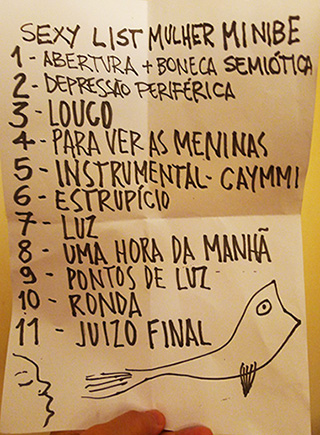 SEXY LIST MULHER MINIBE
1 - ABERTURA + BONECA SEMIÓTICA
2 - DEPRESSÃO PERIFÉRICA
3 - LOUCO
4 - PARA VER AS MENINAS
5 - INSTRUMENTAL - CAYMMI
6 - ESTRUPÍCIO
7 - LUZ
8 - UMA HORA DA MANHÃ
9 - PONTOS DE LUZ
10 - RONDA
11 - JUIZO FINAL